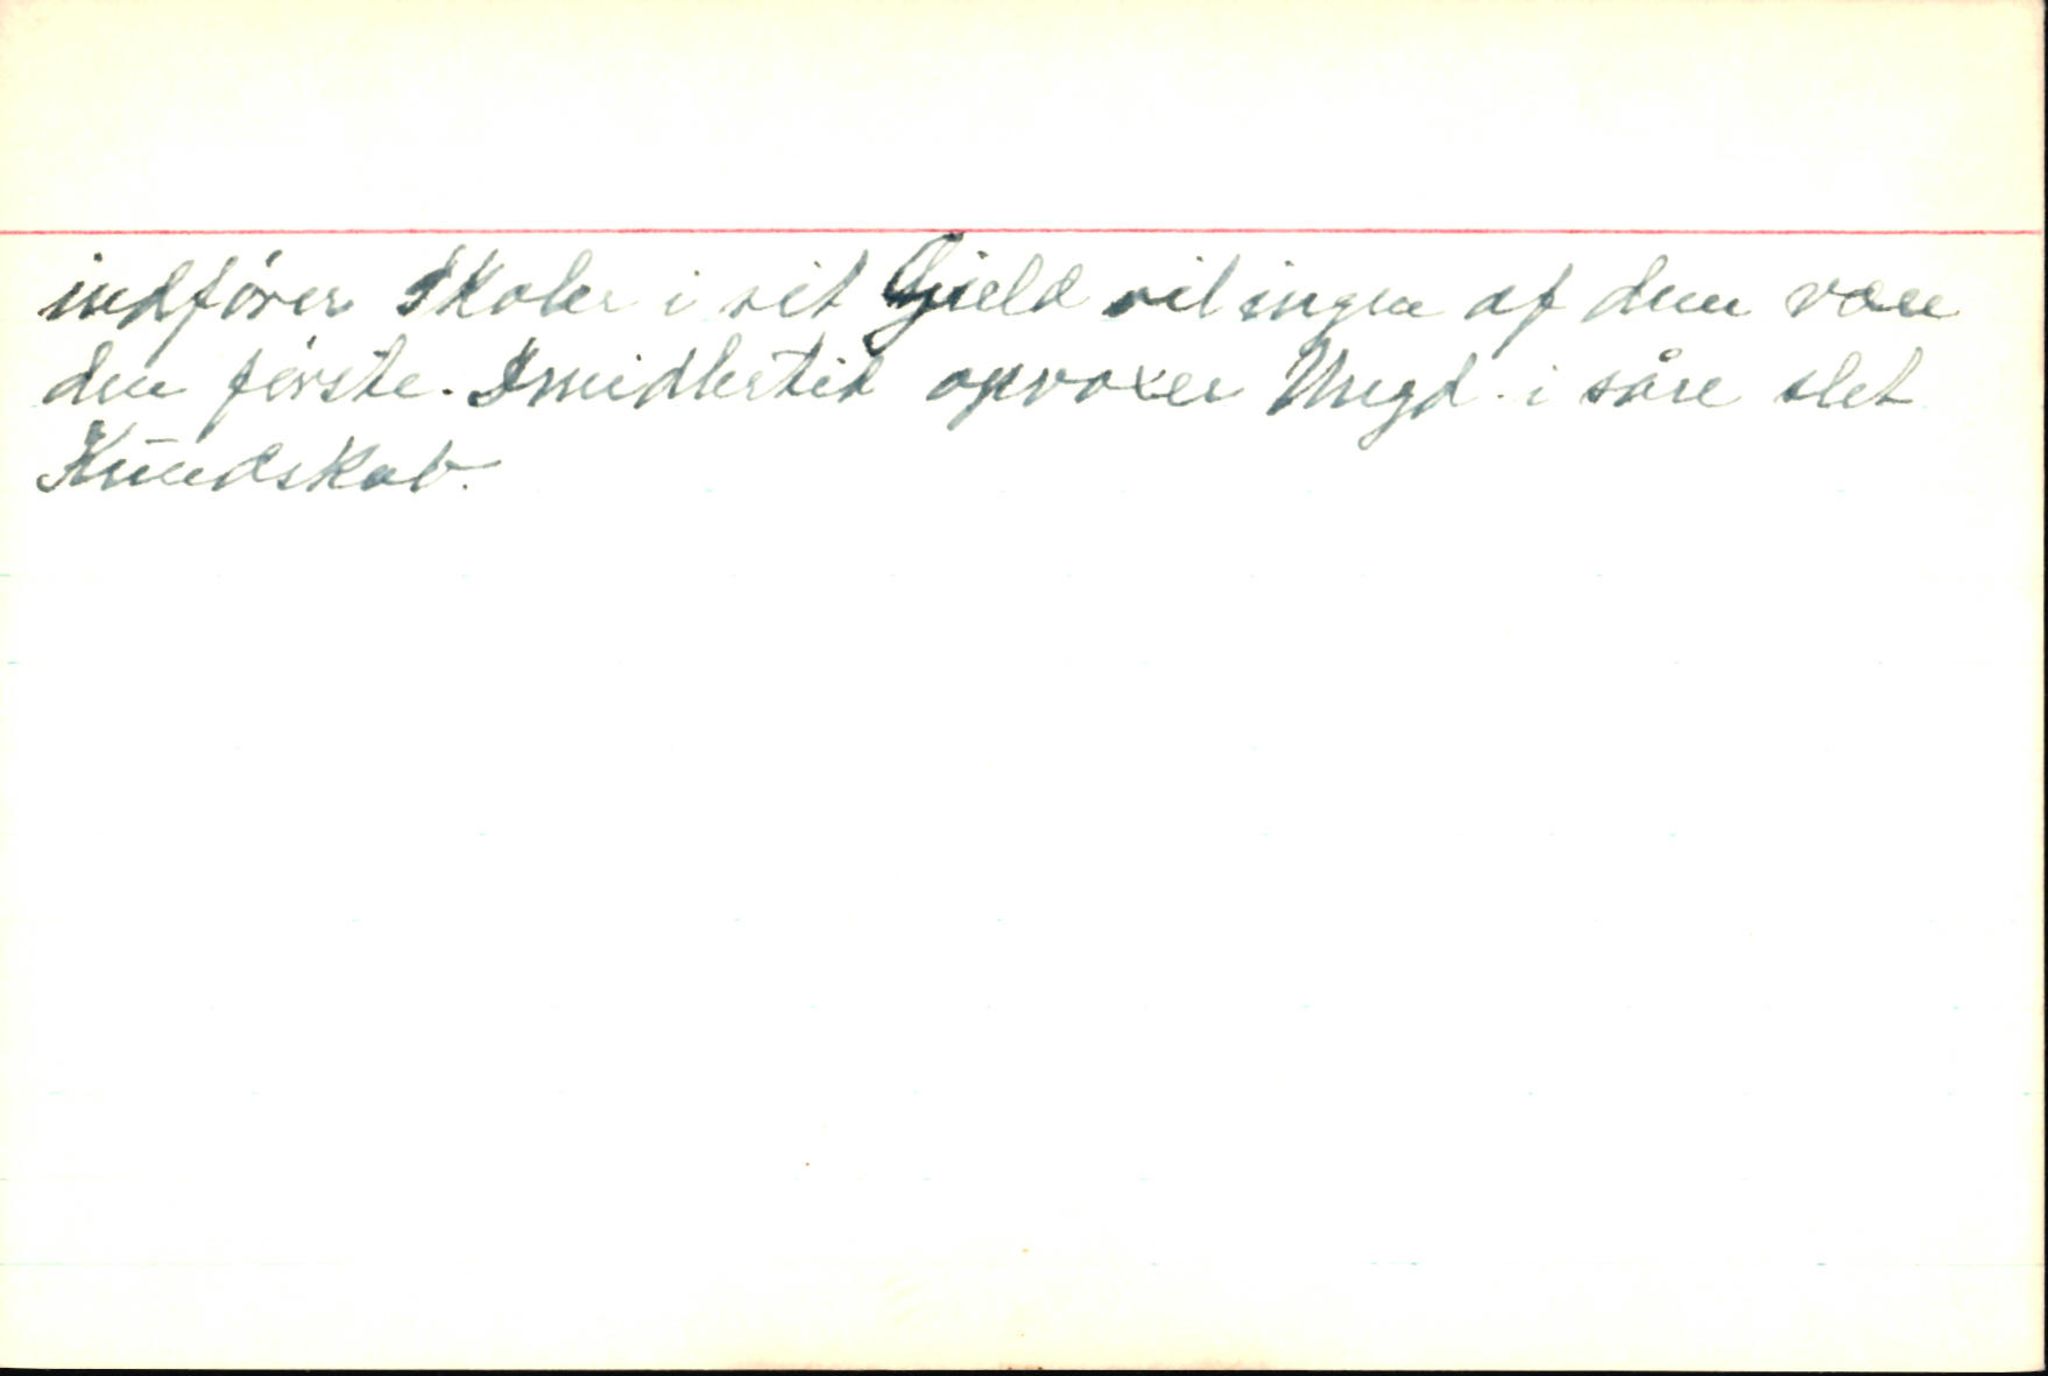 indfører Skoler i sit Gjæld vil ingen af dem være
den første. Imidlertid opvoxer Ungd. i såre slet
Kundskab.